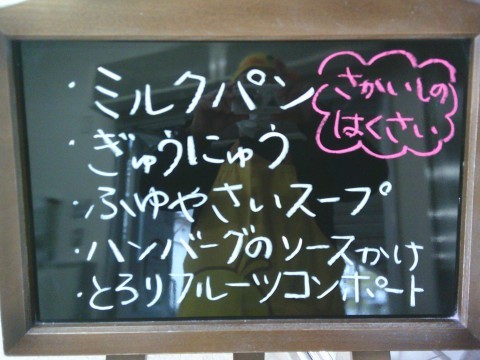 ・ミルクパン
・ぎゅうにゅう
・ふゆやさいスープ
・ハンバーグのソースかけ
・とろりフルーツコンポート
さかいしの
はくさい